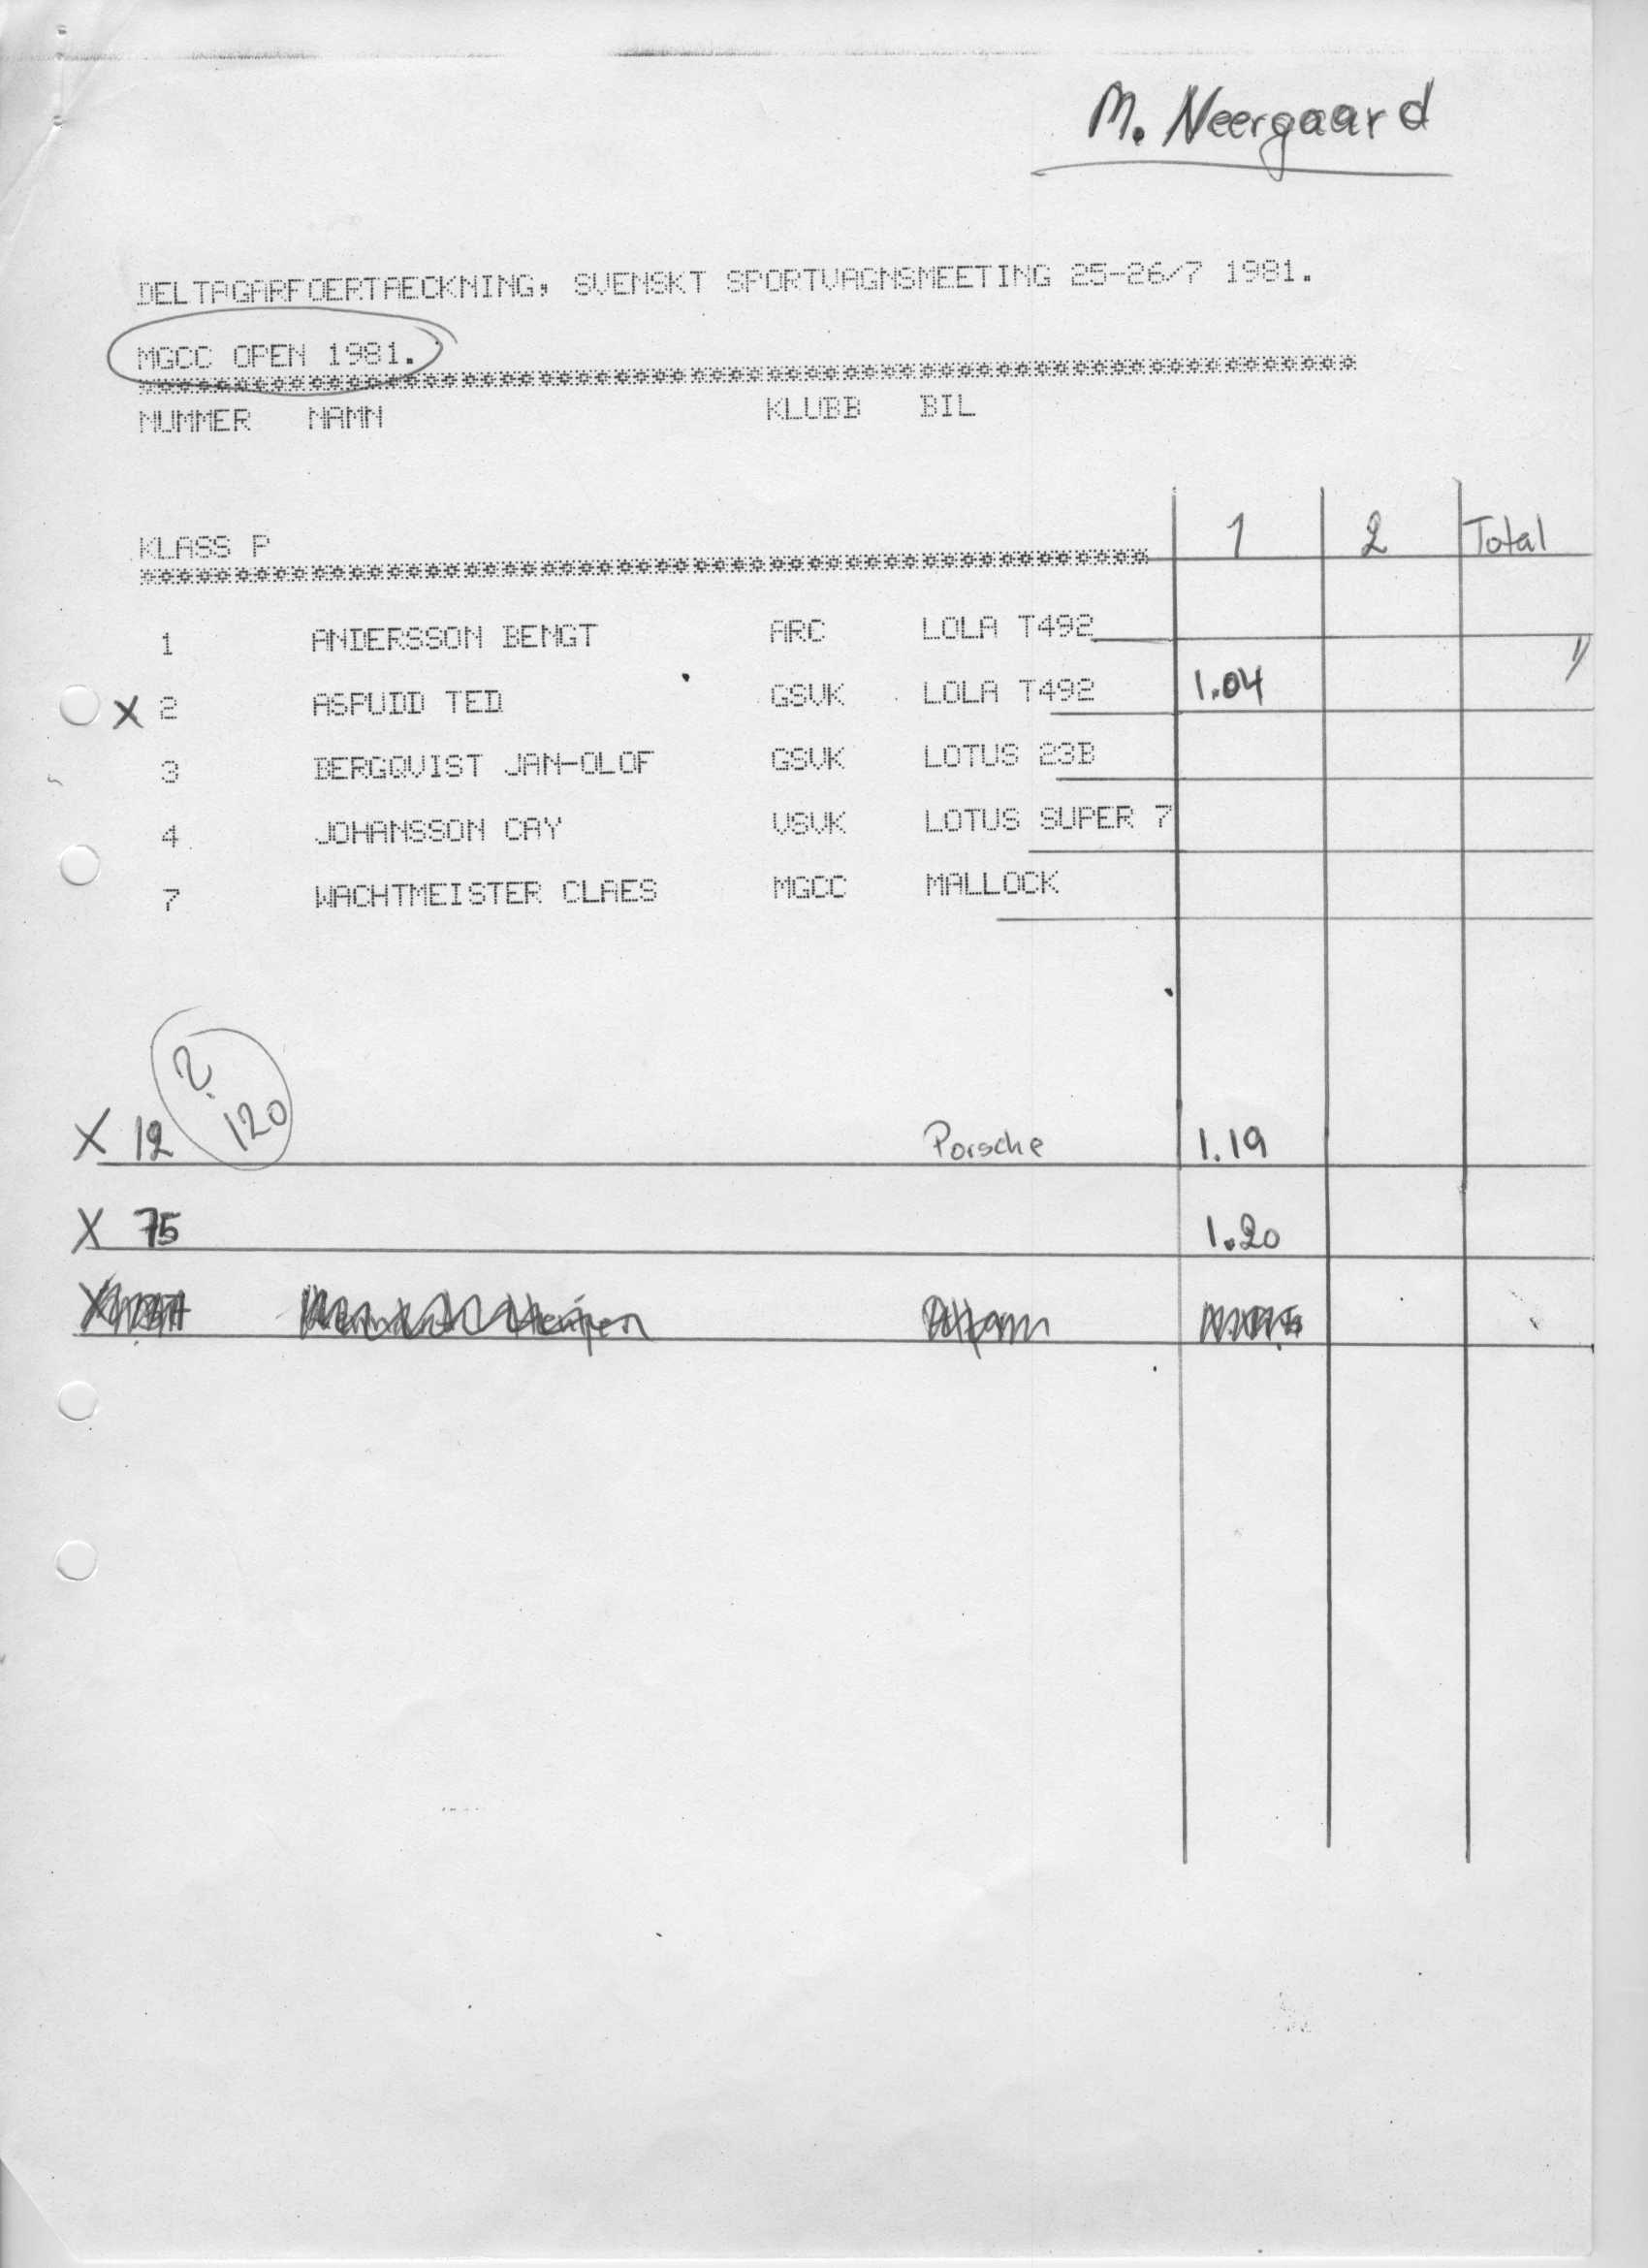 M. Neergaard
DELTAGARFOERTAECKNING, SVENSKT SPORTVAGNSMEETING 25-26/7 1981.
MGCC OPEN 1981.
****************************************************************
NUMMER NAMN KLUBB BIL
KLASS P 1 2 Total
*****************************************************
1 ANDERSSON BENGT ARC LOLA T492
X 2 ASPUDD TED GSVK LOLA T492 1.04
3 BERGQVIST JAN-OLOF GSVK LOTUS 23B
4 JOHANSSON CAY VSVK LOTUS SUPER 7
7 WACHTMEISTER CLAES MGCC MALLOCK
?
120
X 12 Porsche 1.19
X 75 1.20